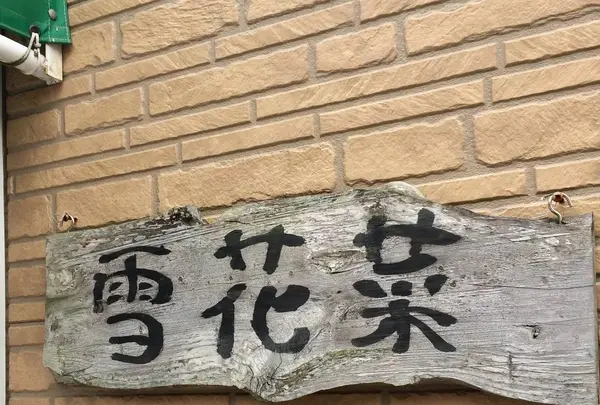 雪花菜